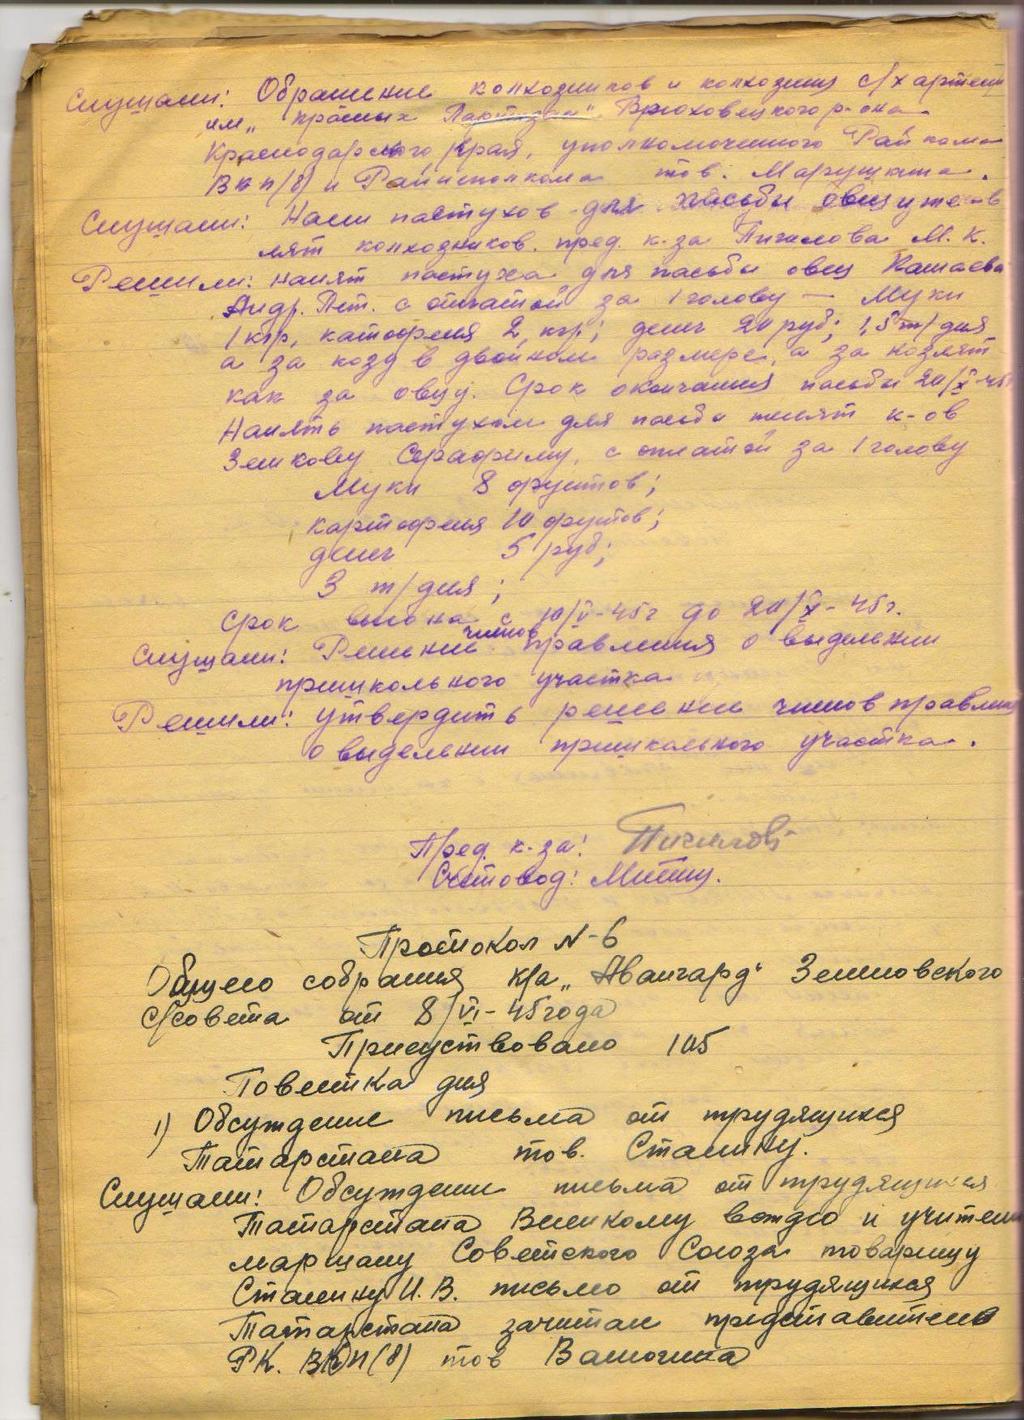 Слушали: Обращение колхозников и колхозниц с/х артели
им „Красных Партизан" Брюховецкого р-она
Краснодарского края, уполномоченного Райкома
ВКП/б/ и Райисполкома тов. Марушкина.
Слушали: Найм пастухов для пасьбы овец у
колхозников. пред. к-за Пигалова М.К.
Решили: нанят пастуха для пасьбы овец
Андр. Пет. с оплатой за 1 голову — Муки
1 кгр, катофеля 2 кгр; денег 20 руб; 1,5 т/дня
а за козу в двойном размере, а за козлят
как за овцу. Срок окончания пасьбы 20/X-45
Нанять пастухом для пасьбы телят к-ов
Зенкову Серафиму, с оплатой за 1 голову
Муки 8 фунтов;
картофеля 10 фунтов;
денег 5 руб;
3 т/дня;
Срок выгона с 10/V-45г до 20/X-45г.
Слушали: Решение членов правления о выделении
пришкольного участка
Решили: Утвердить решение членов правления
о выделении пришкольного участка.
Пред. к-за: Пигалов
Счетовод: Митин.
Протокол N-6
Общего собрания к/а „Авангард"
С/совета от 8/VI-45 года
Присуствовало 105
Повестка дня
1) Обсуждение письма от трудящихся
Татарстана тов. Сталину.
Слушали: Обсуждение письма от трудящихся
Татарстана Великому вождю и учителю
маршалу Советского Союза товарищу
Сталину И.В. письмо от трудящихся
Татарстана зачитал представитель
РК. ВКП(б) тов